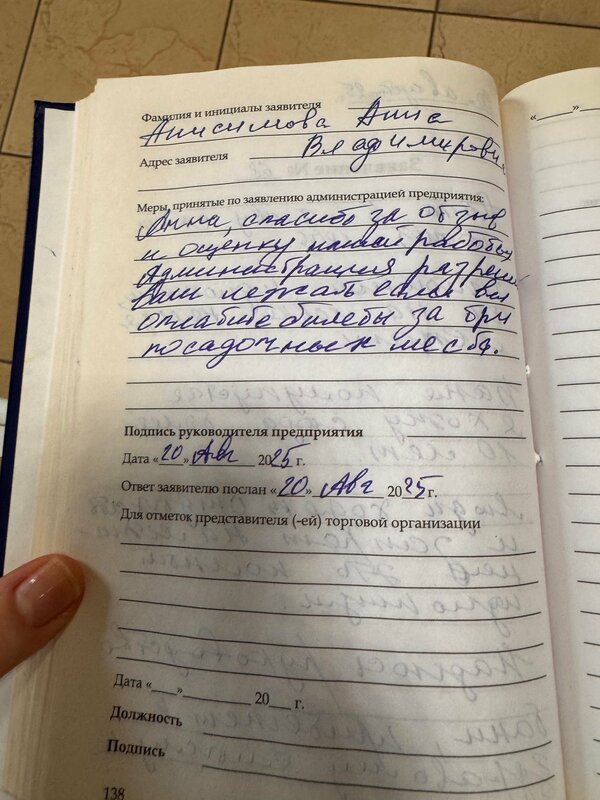 Фамилия и инициалы заявителя
Анисимова Анна
Адрес заявителя Владимировн
Меры, принятые по заявлению администрацией предприятия:
Анна, спасибо за отзыв
и оценку нашей работы
Администрация разреши
вам лежать если вы
оплатите билеты за три
посадочных места.
Подпись руководителя предприятия
Дата «20» Авг 2025 г.
Ответ заявителю послан «20» Авг 2025 г.
Для отметок представителя (-ей) торговой организации
Дата «___» ________ 20___ г.
Должность
Подпись
138
«___»